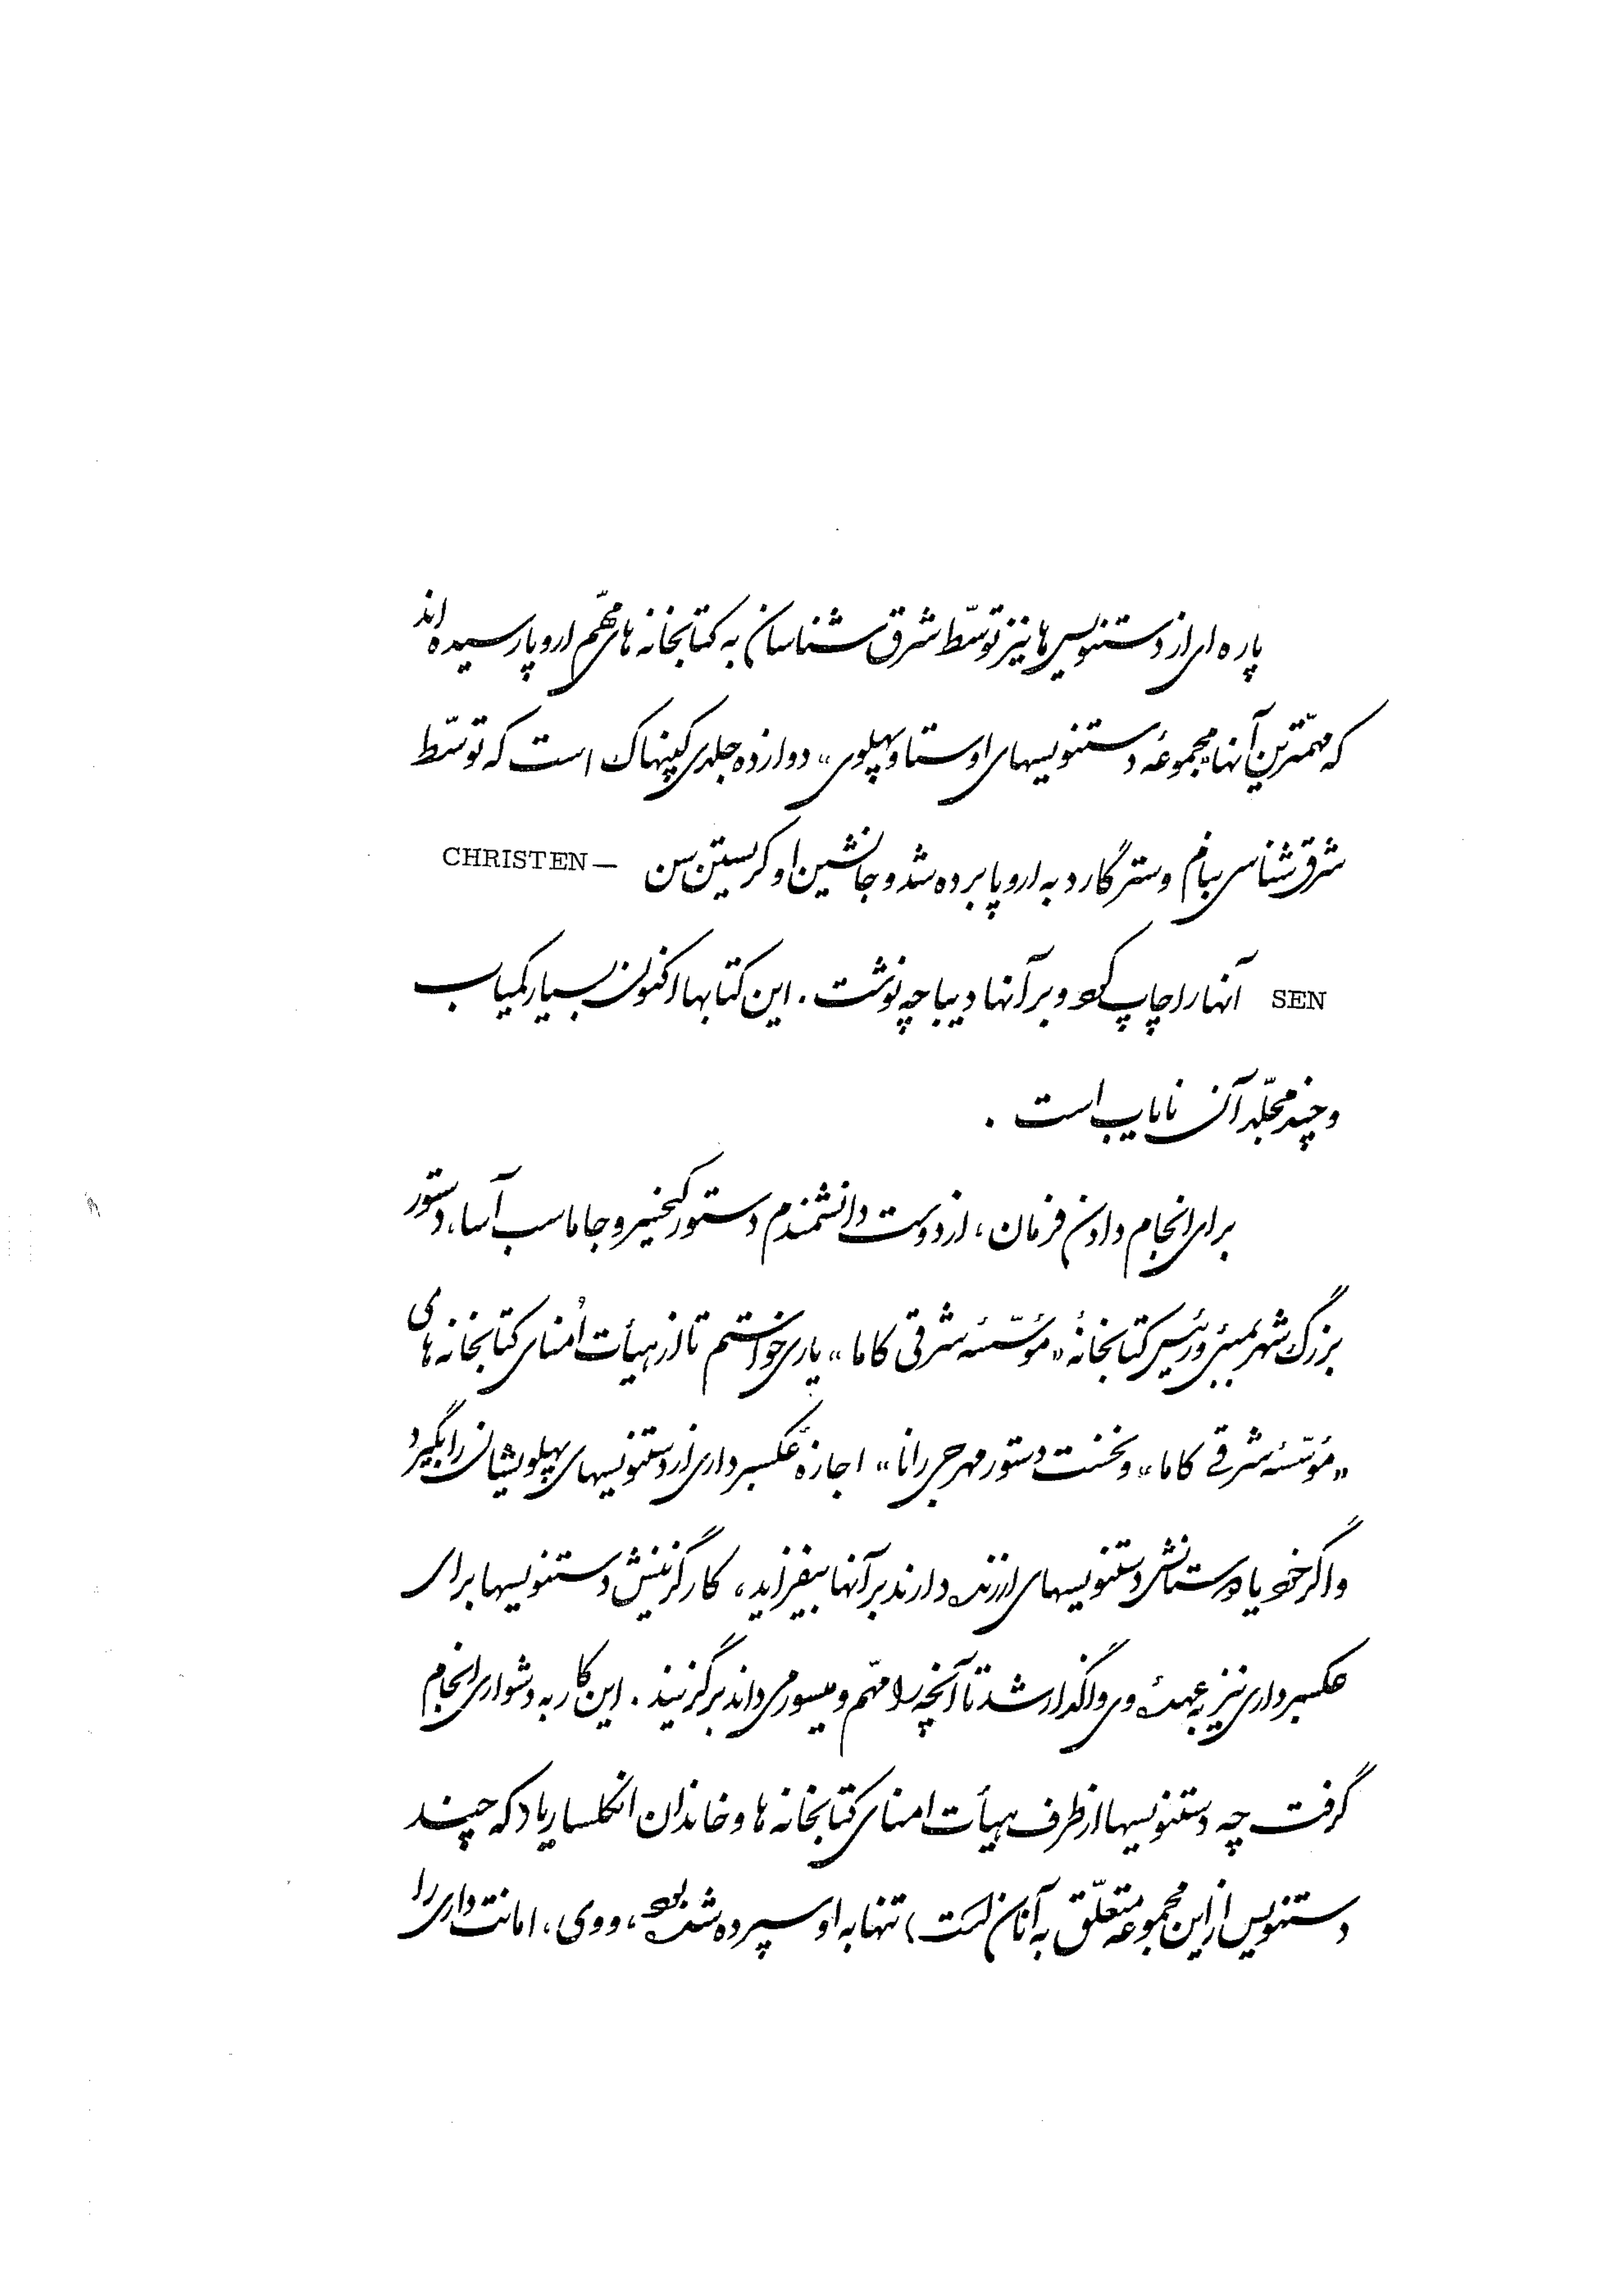 پاره ای از دستنویس‌ها نیز توسّط شرق شناسان به کتابخانه های مهّم اروپا رسیده اند
که مهمّترین آنها «مجموعهٔ دستنویسهای اوستا و پهلوی» دوازده جلدی کپنهاک است که توسّط
شرق شناسی بنام وسترگارد به اروپا برده شد و جانشین او کریستن سن CHRISTEN –
SEN آنها را چاپ کرد و بر آنها دیباچه نوشت. این کتابها اکنون بسیار کمیاب
و چند مجلّد آن نایاب است .
برای انجام دادن فرمان، از دوست دانشمندم دستور کیخسرو جاماسب آسا، دستور
بزرگ شهر بمبئی و رئیس کتابخانهٔ «مؤسّسهٔ شرقی کاما» یاری خواستم تا از هیأت اُمنای کتابخانه های
«مؤسّسهٔ شرقی کاما» و نخست دستور مهرجی رانا» اجازهٔ عکسبرداری از دستنویسهای پهلویشان را بگیرد
و اگر خود یا دوستانش دستنویسهای ارزنده دارند بر آنها بیفزاید، کار گزینش دستنویسها برای
عکسبرداری نیز به عهدهٔ وی واگذار شد تا آنچه را مهّم و میسور می داند برگزیند. این کار به دشواری انجام
گرفت چه دستنویسها از طرف هیأت امنای کتابخانه ها و خاندان انکلساریا (که چند
دستنویس از این مجموعه متعلّق به آنان است) تنها به او سپرده شده بود، و وی، امانت داری را